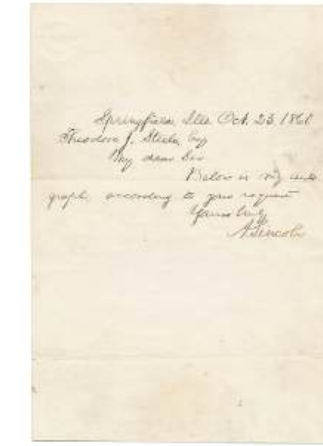 Springfield, Ills. Oct. 23, 1860
Theodore J. Steele, Esq
My dear Sir
Below is my auto-
graph, according to your request
Yours truly
A. Lincoln